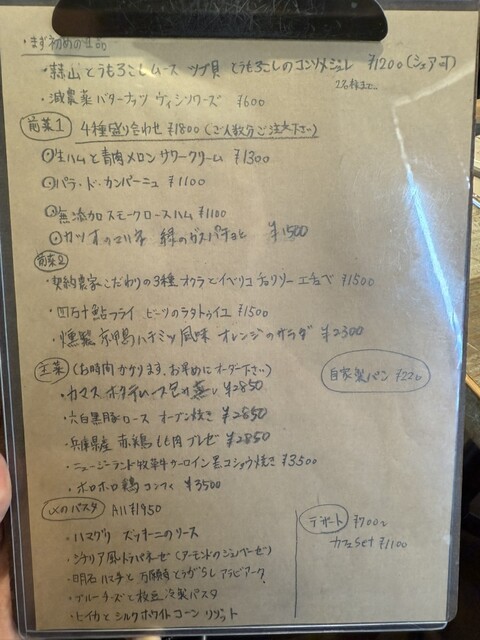 ・まず初めの1品
・蒜山とうもろこしムース ツブ貝 とうもろこしのコンソメジュレ ¥1200(シェア可)
2名様まで
・減農薬バターナッツ ヴィシソワーズ ¥600
前菜1 4種盛り合わせ ¥1800(ご人数分ご注文下さい)
◎生ハムと青肉メロン サワークリーム ¥1300
◎パテ・ド・カンパーニュ ¥1100
◎無添加スモークロースハム ¥1100
◎カツオのマリネ 緑のガスパチョと ¥1500
前菜2
・契約農家こだわりの3種オクラとイベリコチョリソー エチュベ ¥1500
・四万十鮎フライ ビーツのラタトゥイユ ¥1500
・燻製 京鴨ハチミツ風味 オレンジのサラダ ¥2300
主菜 (お時間かかります、お早めにオーダー下さい)
自家製パン ¥220
・カマス ホタテムース包み蒸し ¥2850
・六白黒豚ロース オーブン焼き ¥2850
・兵庫県産 赤鶏もも肉ブレゼ ¥2850
・ニュージーランド牧草牛サーロイン 黒コショウ焼き ¥3500
・ホロホロ鶏 コンフィ ¥3500
〆のパスタ All ¥1950
・ハマグリ ズッキーニのソース
・シチリア風トラパネーゼ(アーモンドのジェノベーゼ)
・明石 ハモと万願寺とうがらし アラビアータ
・ブルーチーズと枝豆 冷製パスタ
・ヒイカとシルクホワイトコーン リゾット
デザート ¥700〜
カフェSet ¥1100